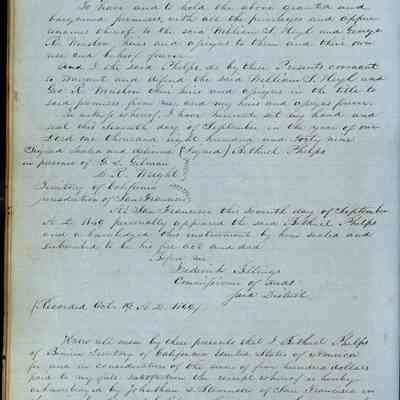 To have and to hold the above granted and
bargained premises, with all the privileges and appur
tenances thereof to the said William S. Heyl and George
R. Winston heirs and assigns to them and their own
use and behoof forever.
And I the said Phelps do by these Presents covenant
to warrant and defend the said William S. Heyl and
Geo R. Winston their heirs and assigns in the title to
said premises from me, and my heirs and assigns forever.
In witness whereof, I have hereunto set my hand and
seal this Seventh day of September in the year of our
Lord one thousand eight hundred and forty nine
Signed Sealed and delivered (Signed) Bethuel Phelps
in presence of G. L. Gilman
Wright
Territory of California
jurisdiction of San Francisco
At San Francisco this seventh day of September
A.D. 1849 personally appeared the said Bethuel Phelps
and acknowledged this instrument by him sealed and
subscribed to be his free act and deed
Before me
Frederick Billings
Commissioner of Deeds
said District
(Recorded Oct. 19 A.D. 1849)
Know all men by these presents that I Bethuel Phelps
of Benicia Territory of California United States of America
for and in consideration of the sum of five hundred dollars
paid to my full satisfaction the receipt whereof is hereby
acknowledged by Johnathan S. of San Francisco in